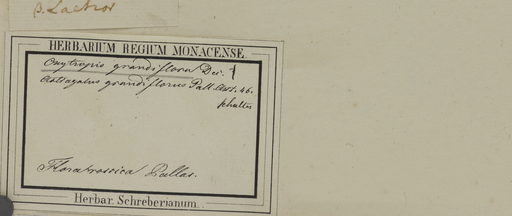 β. Lactior
HERBARIUM REGIUM MONACENSE.
Oxytropis grandiflora Dec.
Astragalus grandiflorus Pall. Astr. 46.
Schultes
Flora rossica Pallas.
Herbar. Schreberianum.